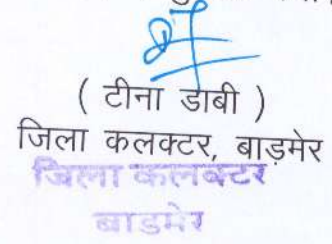 ( टीना डाबी )
जिला कलक्टर, बाड़मेर
जिला कलक्टर
बाडमेर